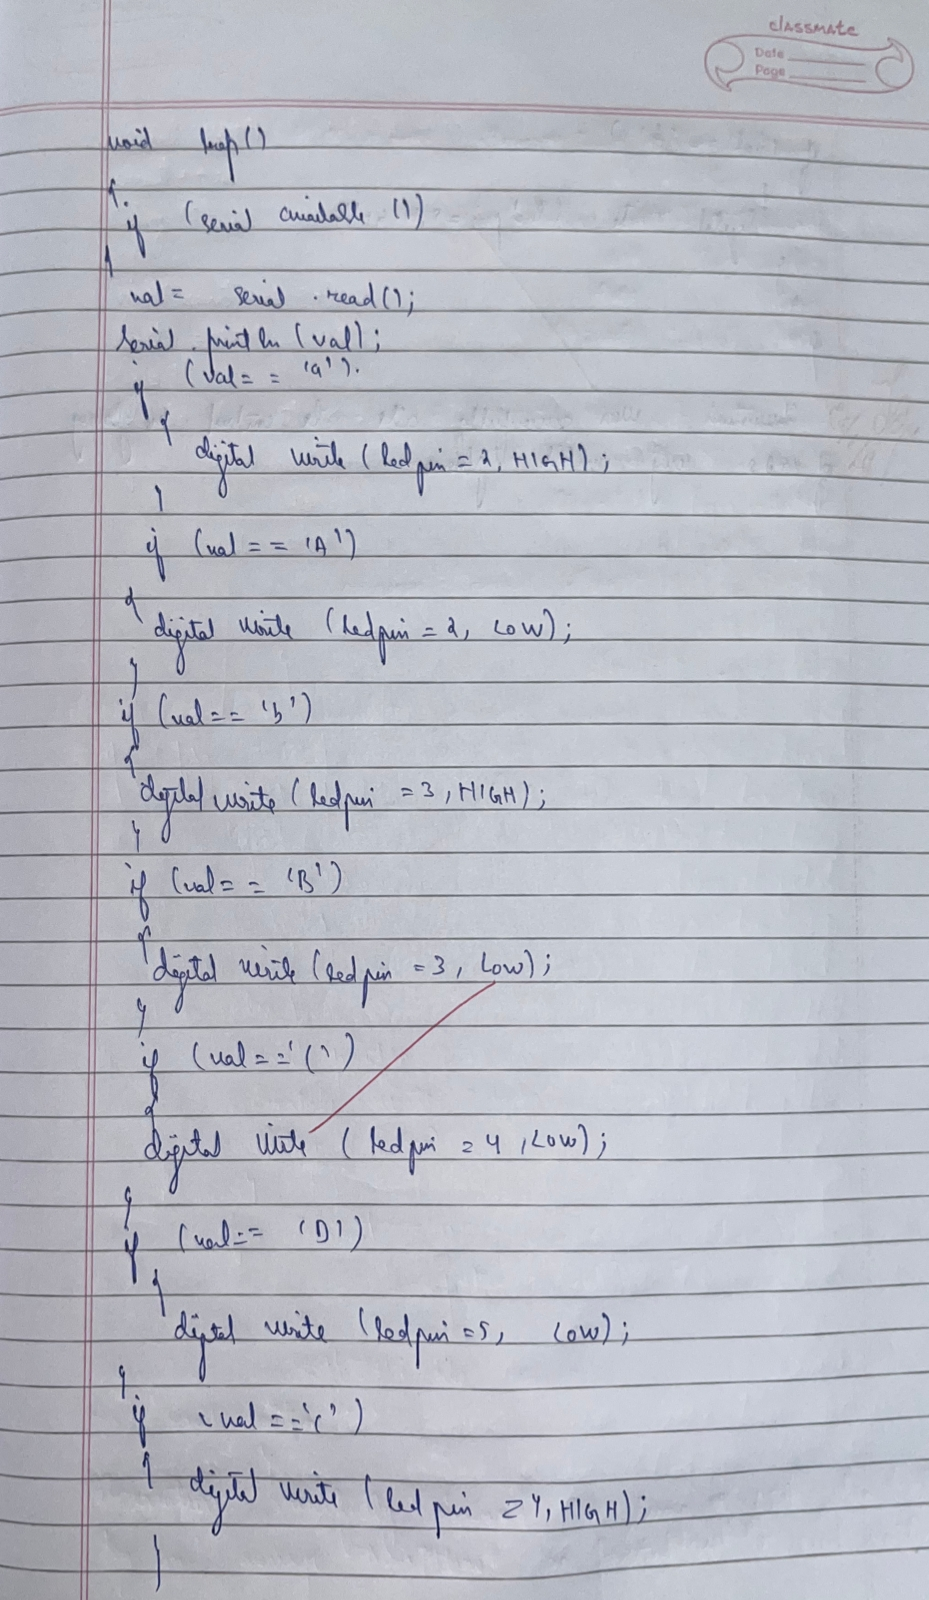 classmate
Date
Page
void loop()
{
if (serial available ())
{
val = serial . read();
serial . print ln (val);
if (val = = 'a').
{
digital write (ledpin = 2, HIGH);
}
if (val = = 'A')
{
digital write (ledpin = 2, LOW);
}
if (val = = 'b')
{
digital write (ledpin = 3, HIGH);
}
if (val = = 'B')
{
digital write (ledpin = 3, Low);
}
if (val = = 'C')
{
digital write (ledpin = 4, LOW);
}
if (val = = 'D')
{
digital write (ledpin = 5, LOW);
}
if (val = = 'c')
{
digital write (led pin = 4, HIGH);
}